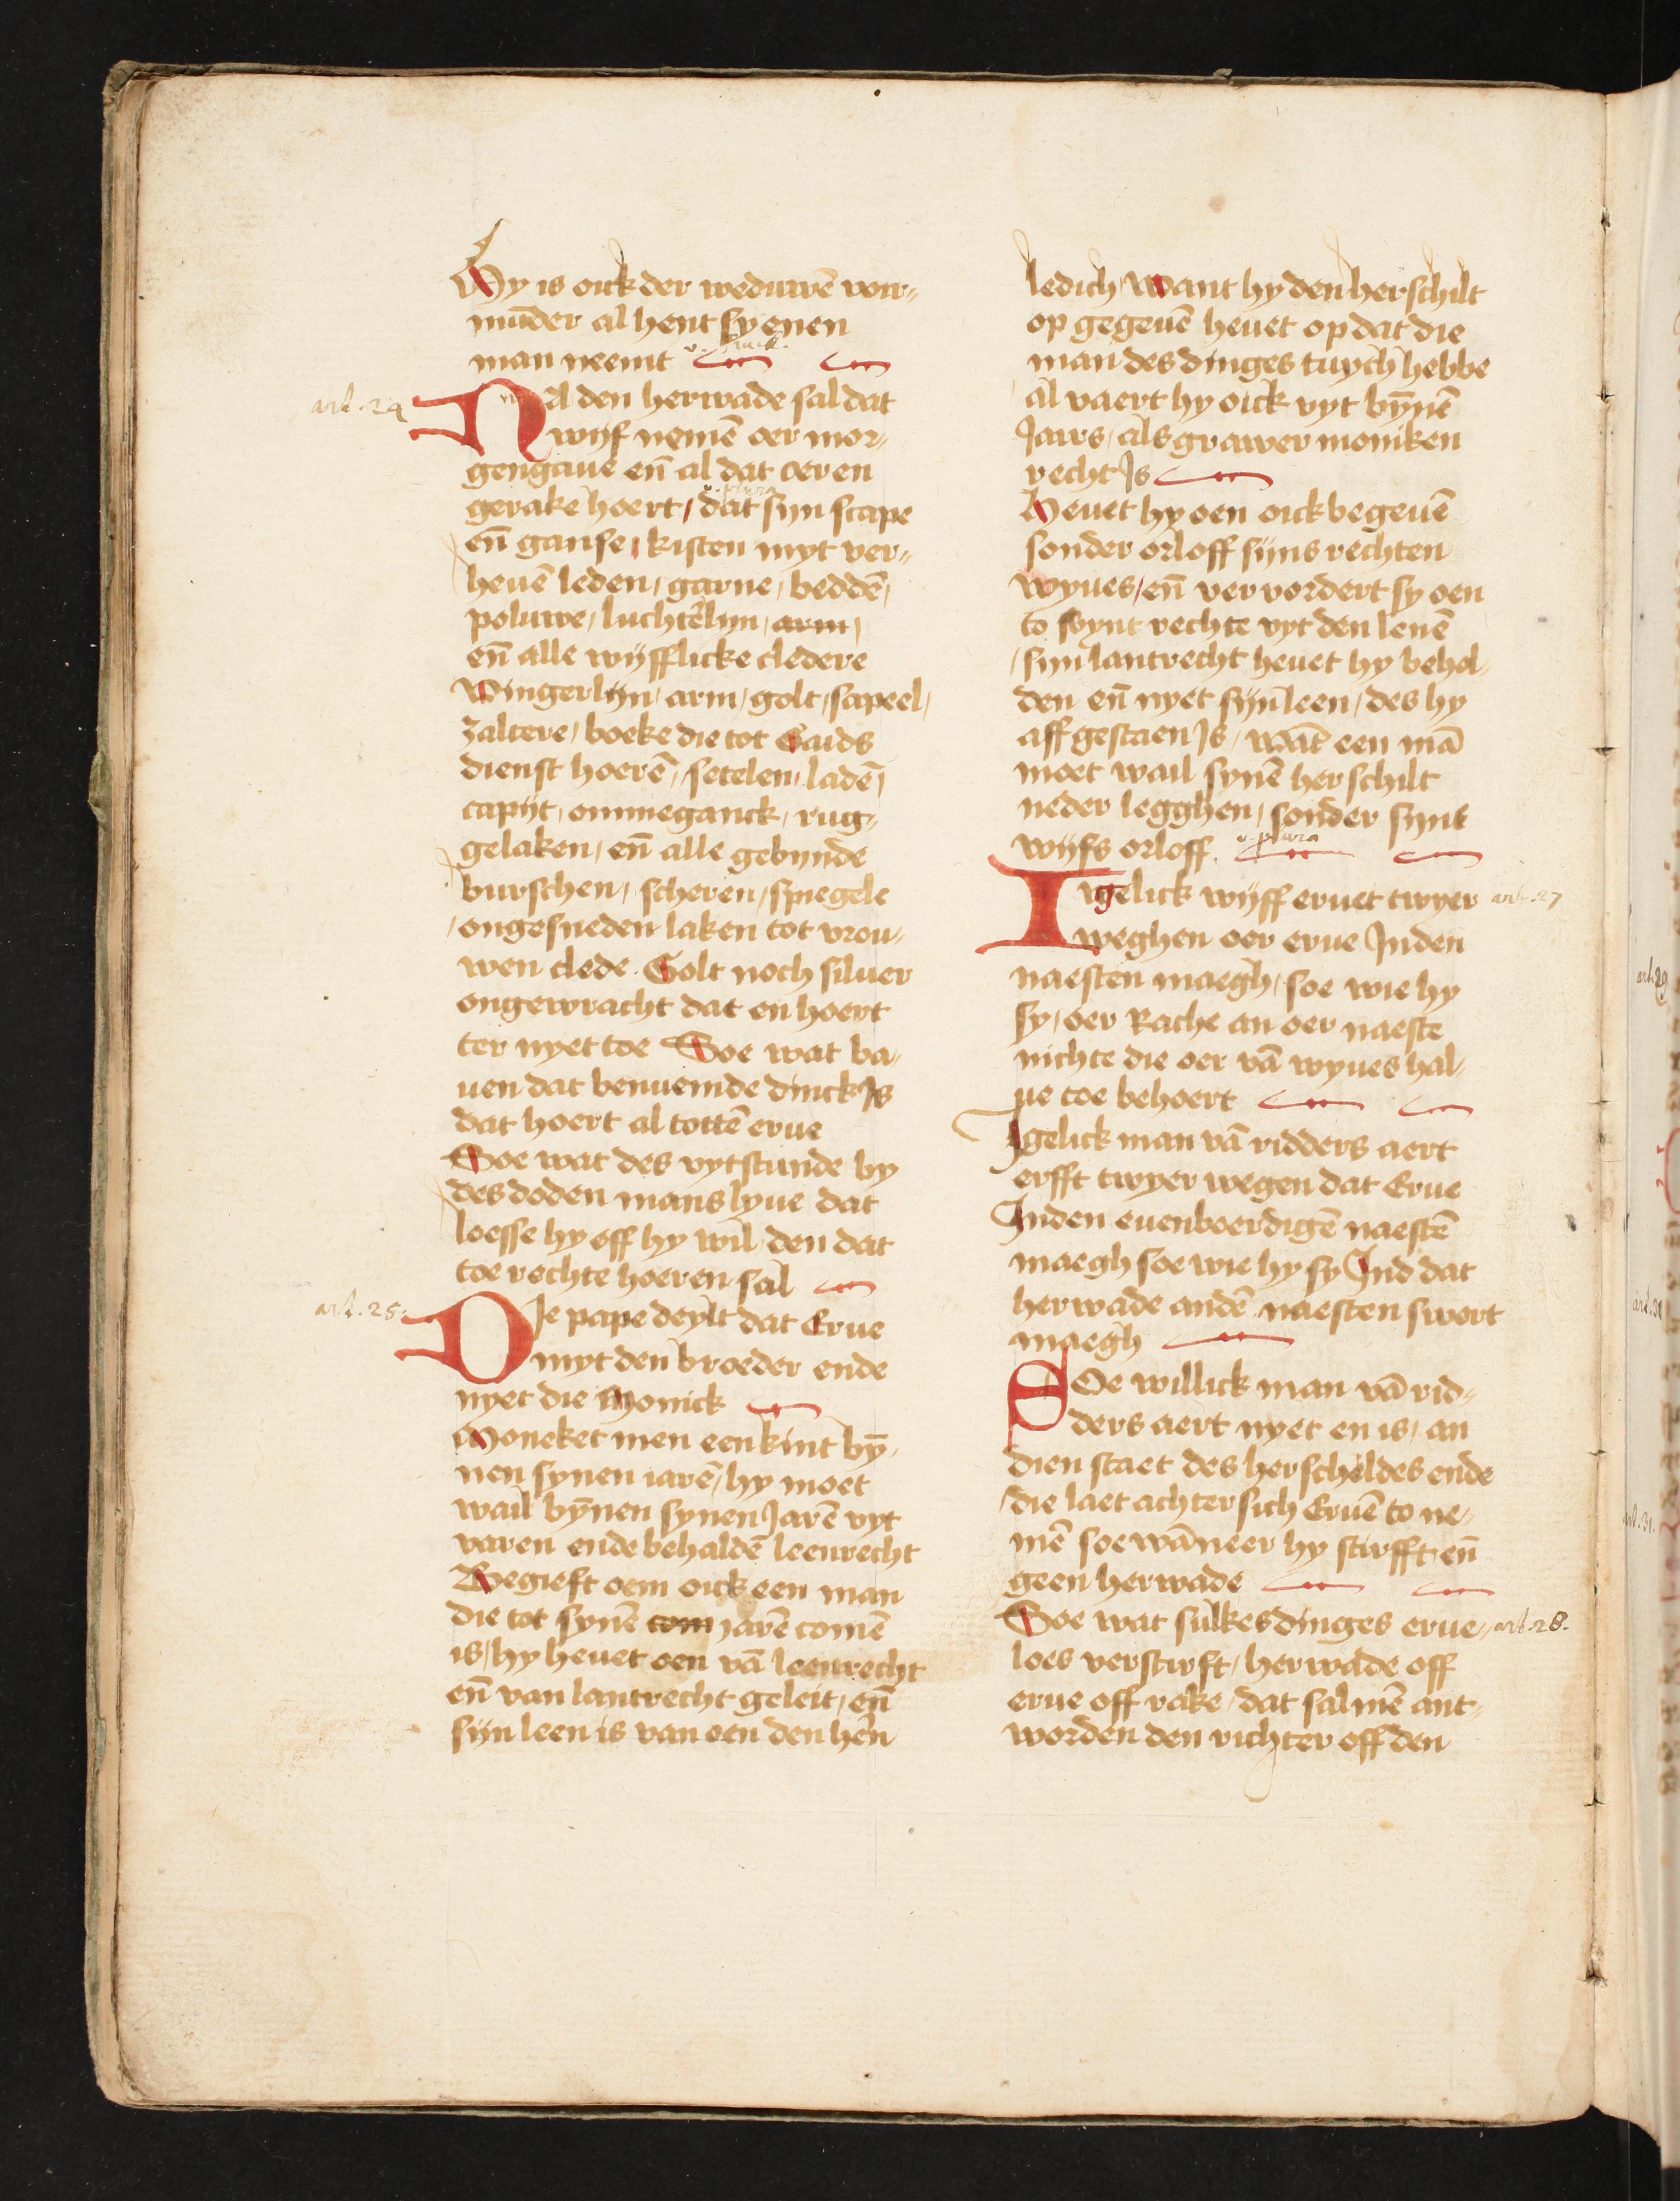 Hy is oick der weduwē vor⸗
mūder al hent sy enen
man neemt
art. 24
Na den herwade sal dat
wijf nemē oer mor⸗
gengaue en̄ al dat oer en
v. plura
gerake hoert / dat sijn scape
en̄ ganse / kisten myt ver⸗
heuē leden / garne / beddē /
poluwe / luchtēlijn / arm /
en̄ alle wijfflicke cledere
Vingerlijn / arm / golt / sapeel /
zaltere / boeke die tot Gaids
dienst hoerē / setelen / ladē /
capijt / ommeganck / rug⸗
gelaken / en̄ alle gebynde
burschen / scheren / spiegele
/ ongesneden laken tot vrou⸗
wen clede . Golt noch siluer
ongewracht dat en hoert
ter nyet toe Soe wat ba⸗
uen dat benuemde dinck Is
dat hoert al tottē erue
Soe wat des vytstunde by
des doden mans lyue dat
loesse hy off hy wil / den dat
toe rechte hoeren sal
art. 25.
Die pape deylt dat Erue
myt den broeder ende
nyet die Monick
Moneket men een kint bȳ⸗
nen synen iarē / hy moet
wail bȳnen synen Jarē vyt
varen ende behaldē leenrecht
Begieft oem oick een man
die tot synē com jarē comē
is / hy heuet oen vā leenrecht
en̄ van lantrecht geleit / en̄
sijn leen is van oen den hēn
ledich / Want hy den herschilt
op gegeuē heuet op dat die
man des dinges tuych hebbe
al vaert hy oick vyt bȳnē
Jaers / als grawer moniken
recht Is
Heuet hy oen oick begeuē
sonder orloff sijns rechten
wyues / en̄ vervordert sy oen
to synt rechte vyt den leuē
/ sijn lantrecht heuet hy behol⸗
den en̄ nyet sijn leen / des hy
aff gestaen Is / wāt een mā
moet wail synē herschilt
neder legghen / sonder syns
wijfs orloff.
v. plura
art. 27
Igelick wijff eruet twyer
weghen oer erue Inden
naesten maegh / soe wie hy
sy / oer Rache an oer naeste
nichte die oer vā wyues hal⸗
ue toe behoert
Igelick man vā ridders aert
erfft twyer wegen dat Erue
Inden euenboerdigē naestē
maegh soe wie hy sy Ind dat
herwade andē naesten swert
maegh
Soe willick man vā rid⸗
ders aert nyet en is / an
dien staet des herscheldes ende
/ die laet achter sich Eruē to ne⸗
mē soe wāneer hy stirfft / en̄
geen herwade
Soe wat sulkes dinges erue⸗
art. 28.
loes verstirft / herwade off
erue off rake / dat sal mē ant⸗
worden den richter off den
art. 29
art. 31.